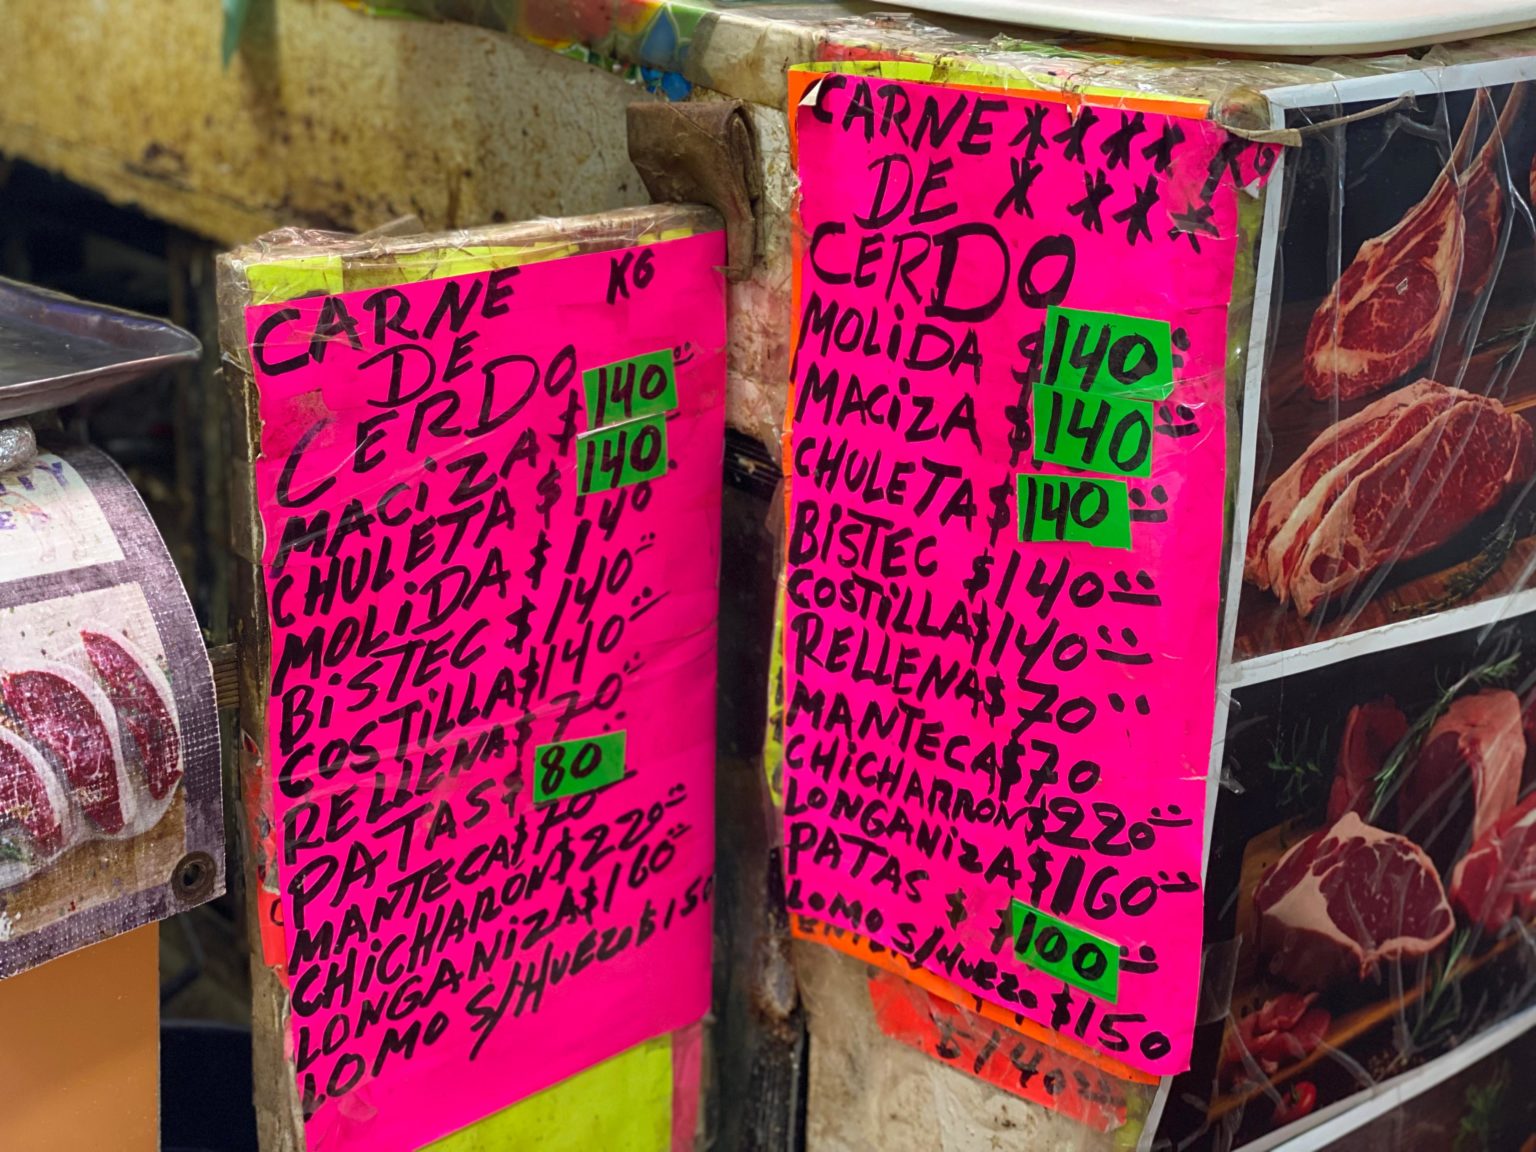 CARNE KG
DE
CERDO
MACiZA $ 140
CHULETA $ 140
MOLiDA $ 140
BiSTEC $ 140
COSTiLLA $ 140
RELLENA $ 70
PATAS $ 80
MANTECA $ 70
CHiCHARON $ 220
LONGANiZA $ 160
LOMO S/HUEZO $ 150
CARNE **** KG
DE * ***
CERDO
MOLiDA $ 140
MACiZA $ 140
CHULETA $ 140
BiSTEC $ 140
COSTiLLA $ 140
RELLENA $ 70
MANTECA $ 70
CHiCHARRON $ 220
LONGANiZA $ 160
PATAS $ $ 100
LOMO S/HUEZO $ 150
$ 140